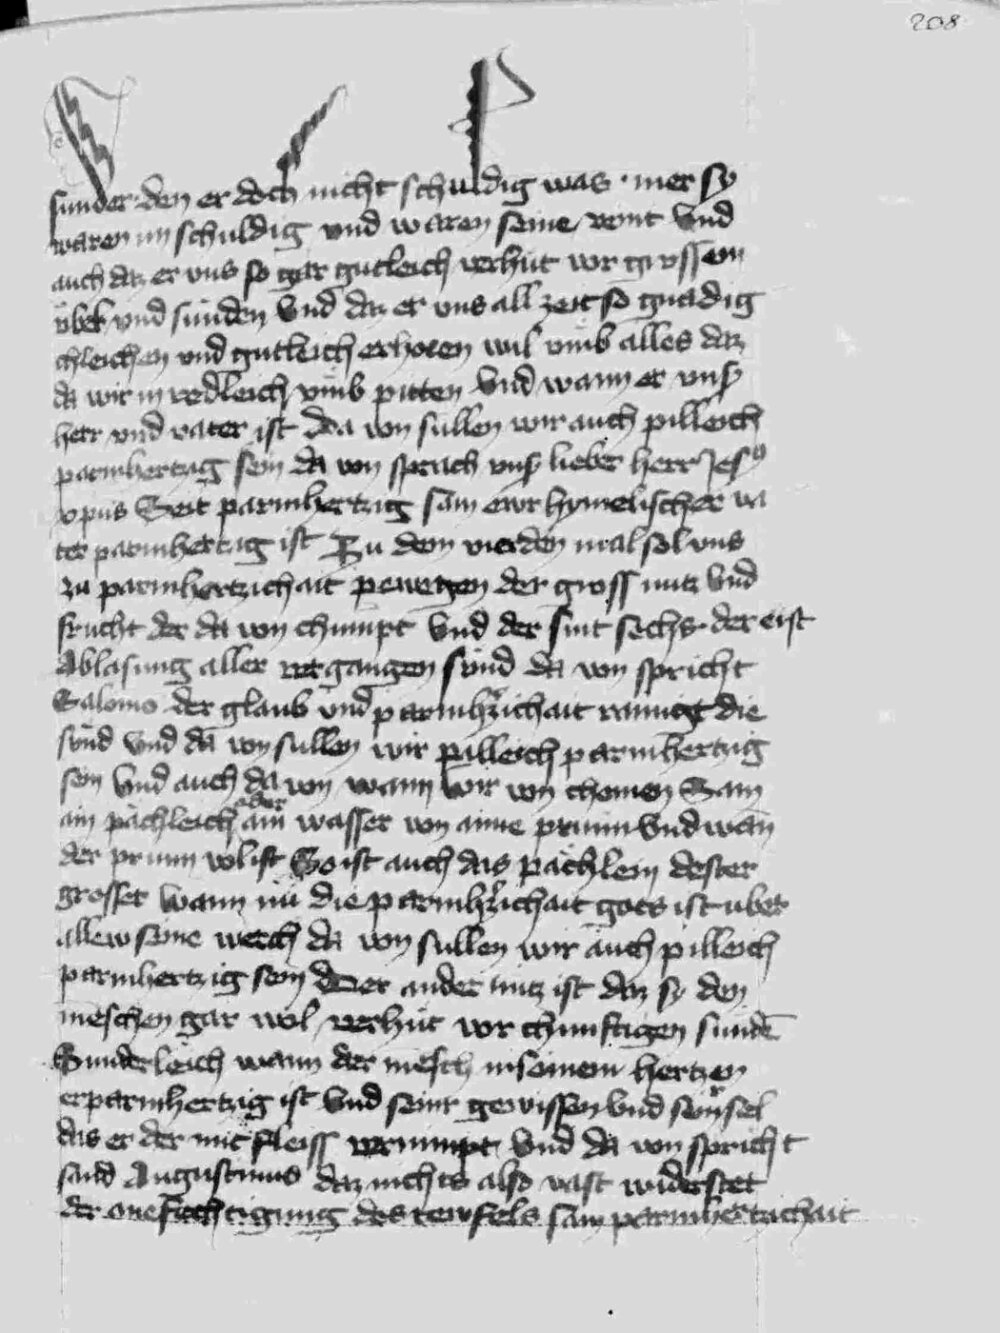 208
sunder den er doch nicht schuldig was · mer sy
waren unschuldig und waren seine veint Und
auch daz er uns so gar gutleich verhüt vor grossem
übel und sunden Und daz er uns all zeit so gnadig
chleichen und gutleich erhoren wil umb alles daz
da wir in redleich umb pitten Und wann er unser
herr und vater ist Da von sullen wir auch pilleich
parmhertzig sein da von sprach unser lieber herr Jesus
xpus Seit parmhertzig sam ewr hymelischer va
ter parmhertzig ist Zu dem vierden mal sol uns
zu parmhertzichait pewegen der gross nutz Und
frucht der da von chumpt Und der sint sechs der erst
Ablasung aller vergangen sünd da von spricht
Salomo der glaub und parmhertzichait rainigt die
sünd Und da von sullen wir pilleich parmhertzig
sein Und auch da von wann wir von chomen Sam
ain pächleich oder ain wasser von aime prunn Und wan
der prunn vol ist So ist auch das pächlein dester
grosser Wann nü die parmhertzichait gots ist uber
allew seine werch da von sullen wir auch pilleich
parmhertzig sein Der ander nutz ist daz sy den
menschen gar wol verhüt vor chunftigen sunden
Sunderleich wann der mensch in seinem hertzen
erparmhertzig ist Und seinr gewissen Und seinr sel
das er der mit fleiss vernimpt Und da von spricht
sand Augustinus daz nichts also vast widerstet
der anefechtigung des teufels sam parmhertzichait